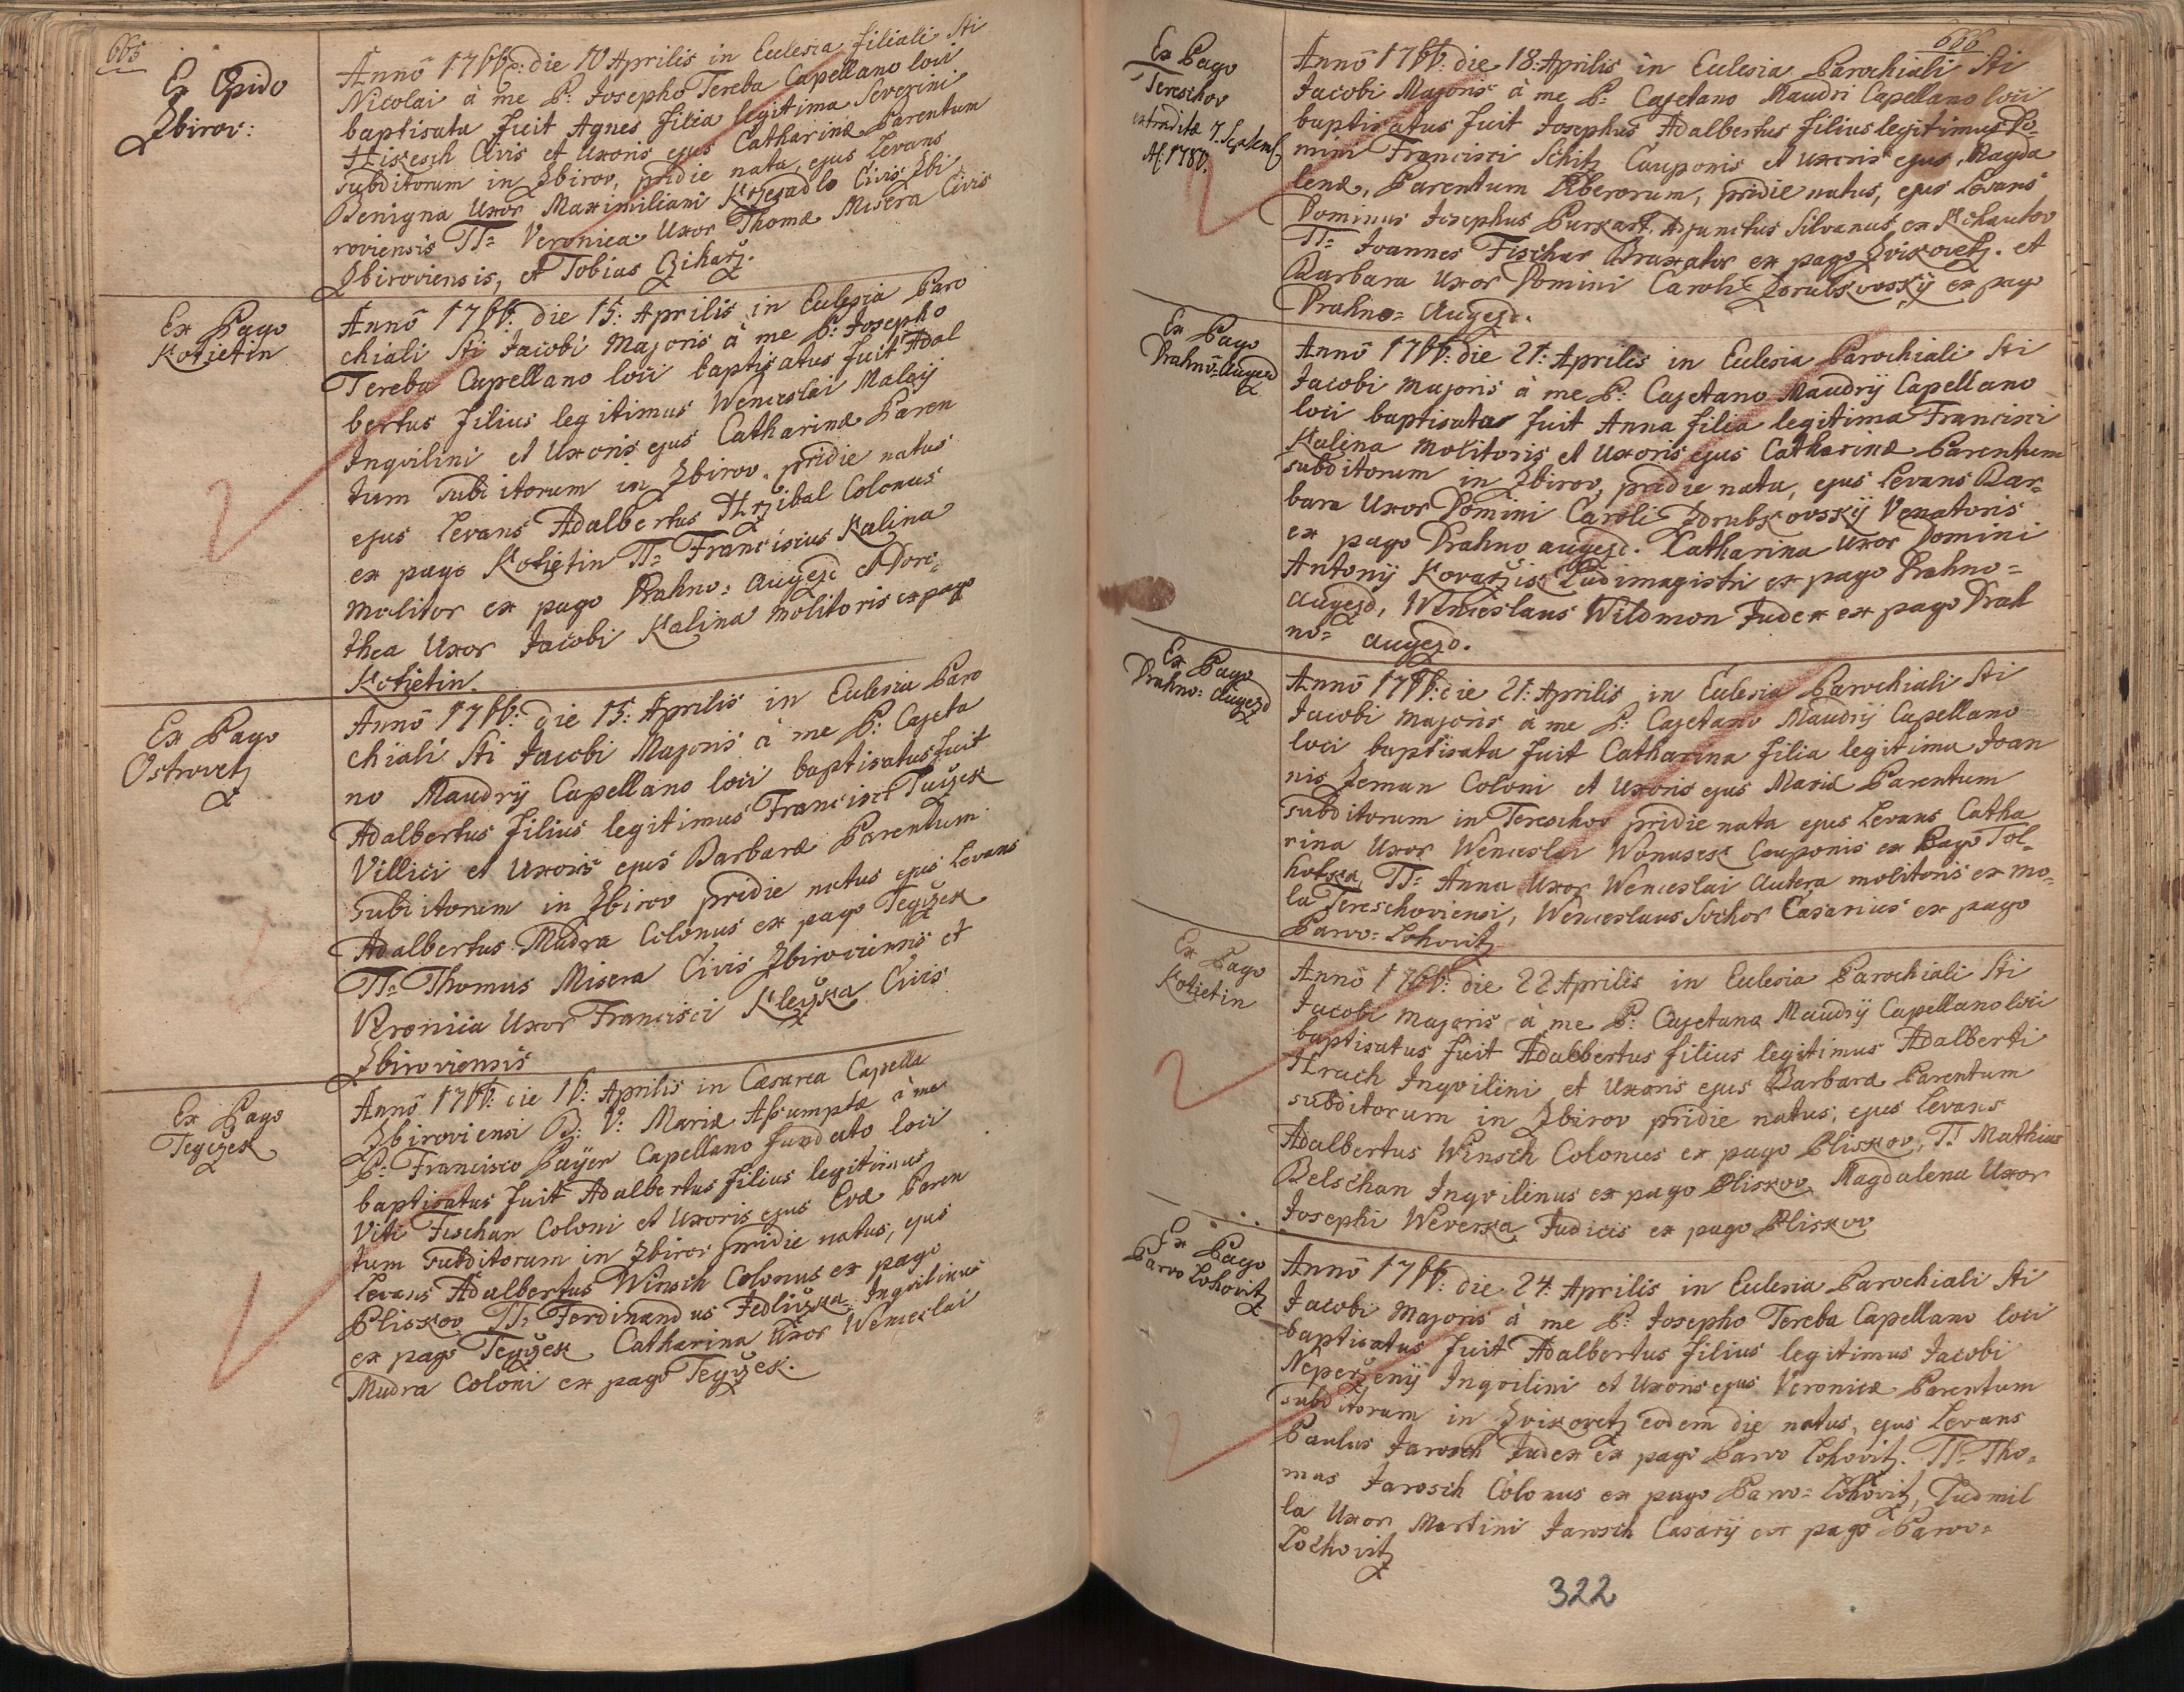 665
Ex Opido
Zbirov:
Annô 1766: die 10 Aprilis in Eclesia filiali Sti
Nicolai à me P: Josepho Tereba Capellano loci
baptisata fuit Agnes filia legitima Severini
Civis et Uxoris ejus Catharinæ Parentum
subditorum in Zbirov, pridie nata, ejus Levans
Benigna Uxor Maximiliani Kozesadlo Civis Zbi
roviensis TT= Veronica Uxor Thomæ Misera Civis
Zbiroviensis, et Tobias
Ex Pago
Kotietin
Annô 1766: die 15: Aprilis in Eclesia Paro
chiali Sti Jacobi Majoris à me P: Josepho
Tereba Capellano loci baptisatus fuit Adal
bertus filius legitimus Wenceslai Maley
Inqvilini et Uxoris ejus Catharinæ Paren
tum subditorum in Zbirov, pridie natus
ejus Levans Adalbertus Hrzibal Colonus
ex pago Kotietin TT= Franciscus Kalina
molitor ex pago Drahno= augezd et Doro=
thea Uxor Jacobi Kalina molitoris ex pago
Kotietin.
Ex Pago
Ostrovetz
Annô 1766: die 15: Aprilis in Eclesia Paro
chiali Sti Jacobi Majoris à me P: Cajeta
no Maudrÿ Capellano loci baptisatus fuit
Adalbertus filius legitimus Francisci
Villici et Uxoris ejus Barbaræ Parentum
subditorum in Zbirov pridie natus ejus Levans
Adalbertus Mudra Colonus ex pago Tegczek
TT= Thomas Misera Civis Zbiroviensis et
Veronica Uxor Francisci Civis
Zbiroviensis
Ex Pago
Tegczek
Annô 1766: die 16: Aprilis in Cæsarea Capella
Zbiroviensi B: V: Mariæ Assumptæ à me
P: Francisco Paÿer Capellano fundato loci
baptisatus fuit Adalbertus filius legitimus
Viti Fischan Coloni et Uxoris ejus Evæ Paren
tum subditorum in Zbirov pridie natus, ejus
Levans Adalbertus Winsch Colonus ex pago
Pliskov TT= Ferdinandus Jedliczka Inqvilinus
ex pago Tegczek Catharina Uxor Wenceslai
Mudra Coloni ex pago Tegczek.
666
Ex Pago
Tereschov
extraditæ 7. Septemb
A: 1780.
Annô 1766: die 18: Aprilis in Eclesia Parochiali Sti
Jacobi Majoris à me P: Cajetano Maudri Capellano loci
baptisatus fuit Josephus Adalbertus filius legitimus Do=
mini Francisci Schitz Cauponis et Uxoris ejus Magda
lenæ, Parentum Liberorum, pridie natus, ejus Levans
Dominus Josephus Purkart Adjunctus Silvanus ex
TT= Joannes Fischer Braxator ex pago Zvikovetz. et
Barbara Uxor Domini Caroli Zdrubkovskÿ ex pago
Drahno= Augezd.
Ex Pago
Drahno= Augezd
Annô 1766: die 21: Aprilis in Eclesia Parochiali Sti
Jacobi majoris à me P: Cajetano Maudrÿ Capellano
loci baptisata fuit Anna filia legitima Francisci
Kalina molitoris et Uxoris ejus Catharinæ Parentum
subditorum in Zbirov, pridie nata, ejus Levans Bar=
bara Uxor Domini Caroli Zdrubkovskÿ Venatoris
ex pago Drahno augezd. Catharina Uxor Domini
Antonÿ Kovarzik Ludimagistri ex pago Drahno=
augezd, Wenceslaus Wildmon Judex ex pago Drah
no= augezd.
Ex Pago
Drahno= Augezd
Annô 1766: die 21: Aprilis in Eclesia Parochiali Sti
Jacobi majoris à me P: Cajetano Maudrÿ Capellano
loci baptisata fuit Catharina filia legitima Joan
nis Zeman Coloni et Uxoris ejus Mariæ Parentum
subditorum in Tereschov pridie nata ejus Levans Catha
rina Uxor Wenceslai Wonasek Cauponis ex Pago Tol=
hotka, TT= Anna Uxor Wenceslai Autera molitoris ex mo=
la Tereschoviensi, Wenceslaus Sochor Casarius ex pago
Parvo= Lohovitz
Ex Pago
Kotietin
Annô 1766: die 22 Aprilis in Eclesia Parochiali Sti
Jacobi majoris à me P: Cajetano Maudrÿ Capellano loci
baptisatus fuit Adalbertus filius legitimus Adalberti
Hrach Inqvilini et Uxoris ejus Barbaræ Parentum
subditorum in Zbirov pridie natus, ejus Levans
Adalbertus Winsch Colonus ex pago Pliskov, T: Mathias
Belschan Inqvilinus ex pago Pliskov Magdalena Uxor
Josephi Weverka Judicis ex pago Pliskov
Ex Pago
Parvo Lohovitz
Annô 1766: die 24: Aprilis in Eclesia Parochiali Sti
Jacobi Majoris à me P: Josepho Tereba Capellano loci
baptisatus fuit Adalbertus filius legitimus Jacobi
Neperzenÿ Inqvilini et Uxoris ejus Veronicæ Parentum
subditorum in Zvikovetz eodem die natus, ejus Levans
Paulus Jarosch Judex ex pago Parvo Lohovitz. TT= Tho=
mas Jarosch Colonus ex pago Parvo= Lohovitz, Ludmil
la Uxor Martini Jarosch Casarÿ ex pago Parvo=
Lochovitz
322